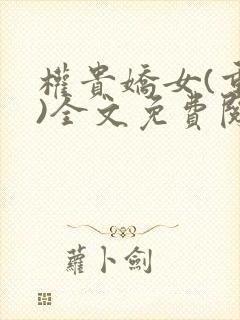 權貴嬌女(
)全文免費
蘿卜劍